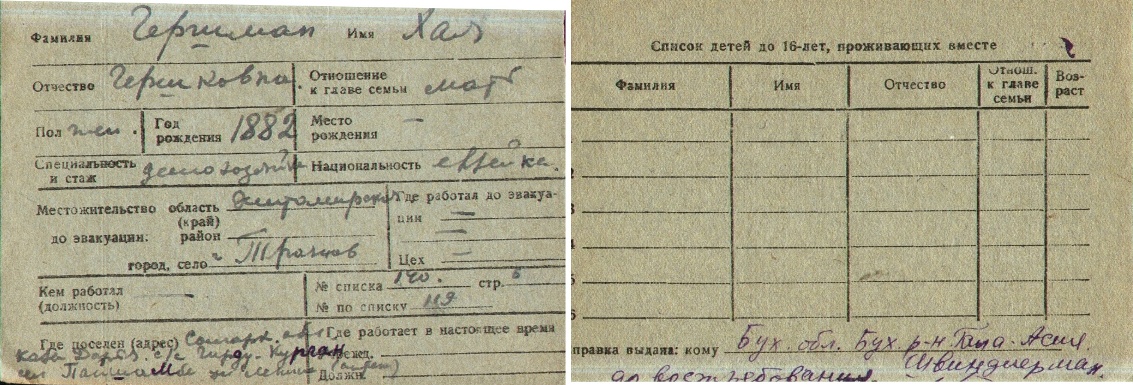 Фамилия Гершман Имя Хая
Отчество Гершковна. Отношение к главе семьи мать
Пол жен. Год рождения 1882 Место рождения —
Специальность и стаж домохозяйка Национальность еврейка.
Местожительство до эвакуации: область (край) Житомирская
район
город, село г.
Где работал до эвакуации —
Цех —
Кем работал (должность) —
№ списка 140. стр. 6
№ по списку 119
Где поселен (адрес)
Где работает в настоящее время
Учрежд.
Должн.
Список детей до 16-лет, проживающих вместе
Фамилия Имя Отчество Отнош. к главе семьи Возраст
1
2
3
4
5
6
правка выдана: кому Бух. обл. Бух. р-н
до востребования. Швиндлерман.